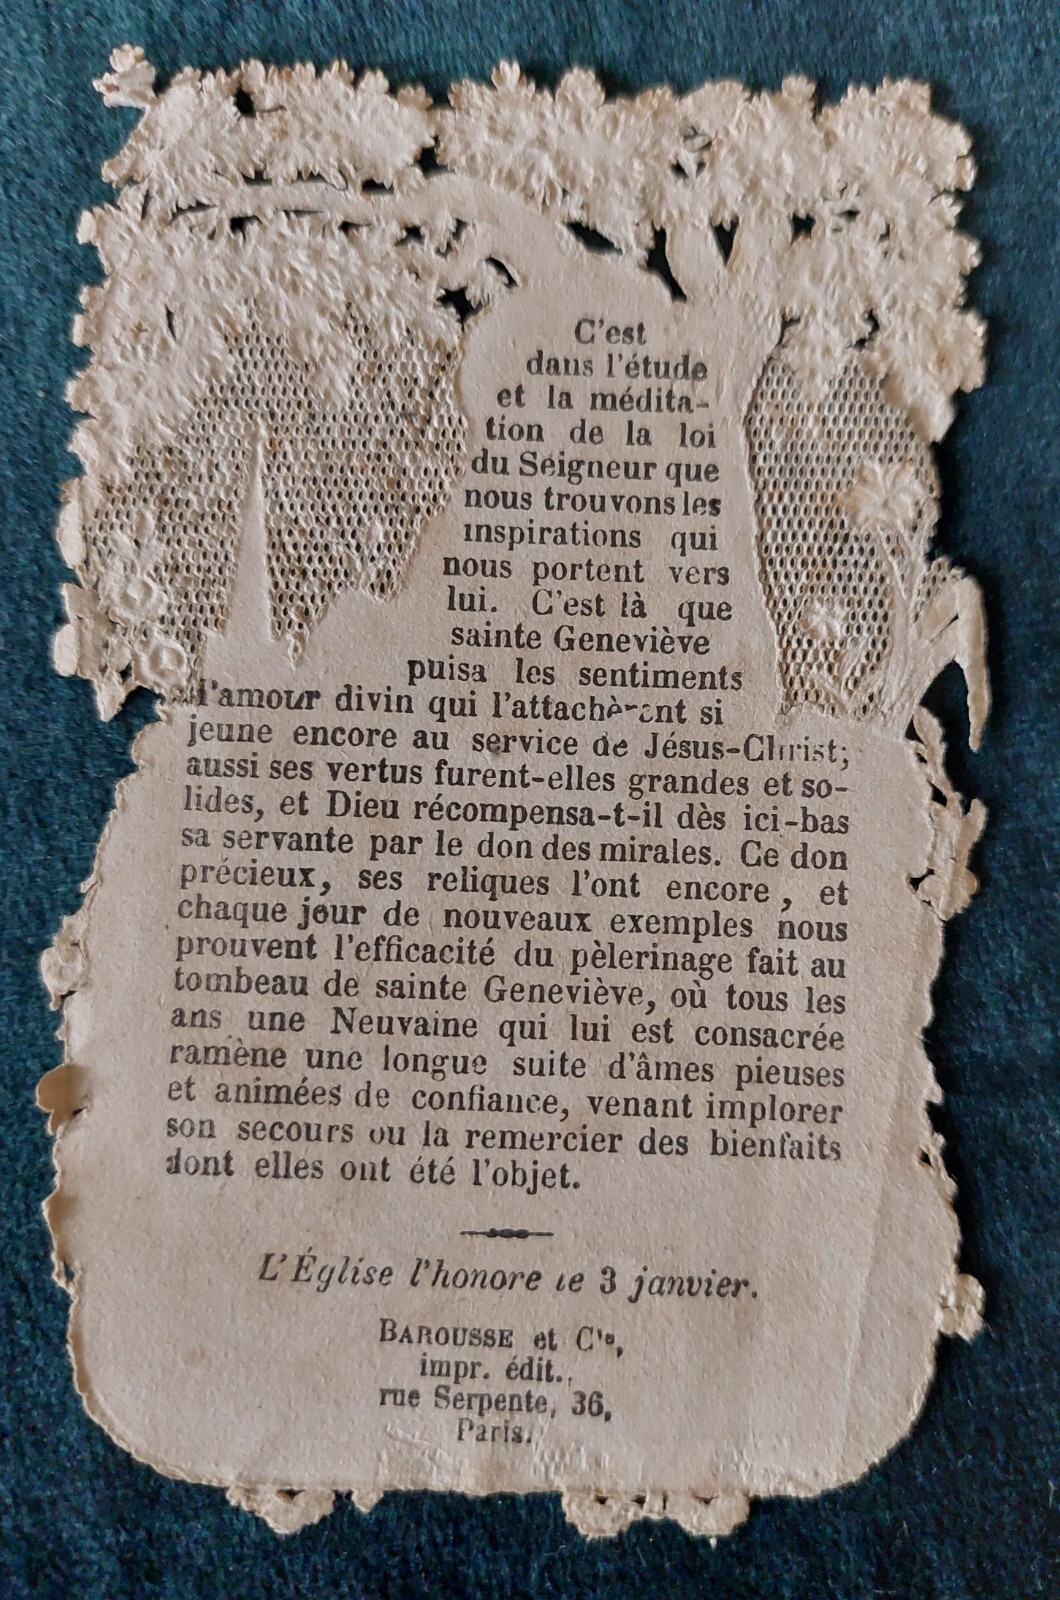 C'est
dans l'étude
et la médita-
tion de la loi
du Seigneur que
nous trouvons les
inspirations qui
nous portent vers
lui. C'est là que
sainte Geneviève
puisa les sentiments
d'amour divin qui l'attachèrent si
jeune encore au service de Jésus-Christ;
aussi ses vertus furent-elles grandes et so-
lides, et Dieu récompensa-t-il dès ici-bas
sa servante par le don des mirales. Ce don
précieux, ses reliques l'ont encore, et
chaque jour de nouveaux exemples nous
prouvent l'efficacité du pèlerinage fait au
tombeau de sainte Geneviève, où tous les
ans une Neuvaine qui lui est consacrée
ramène une longue suite d'âmes pieuses
et animées de confiance, venant implorer
son secours ou la remercier des bienfaits
dont elles ont été l'objet.
L'Église l'honore le 3 janvier.
BAROUSSE et Cie,
impr. édit.,
rue Serpente, 36,
Paris.